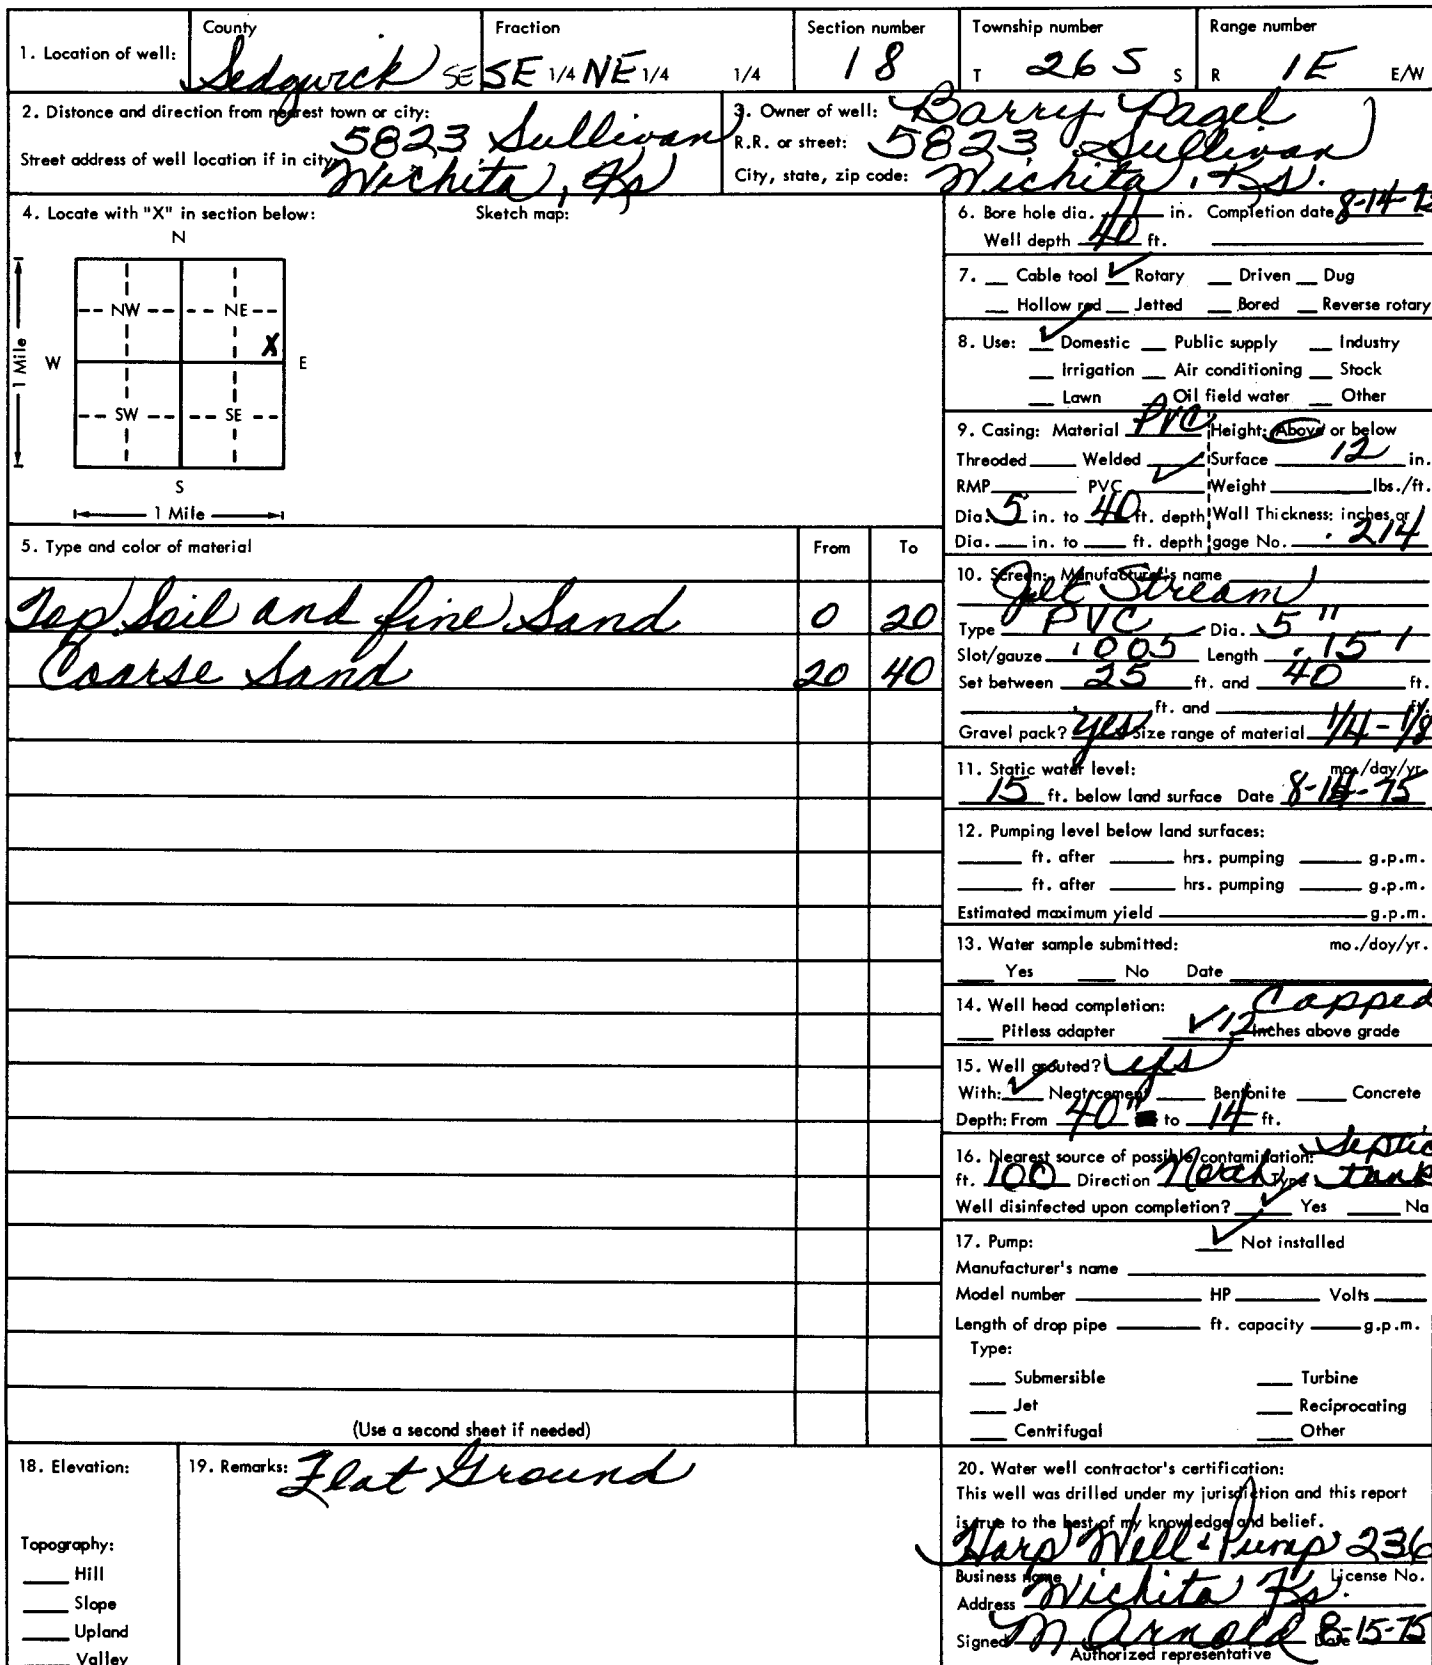 1. Location of well: County Sedgwick Fraction SE SE 1/4 NE 1/4 1/4 Section number 18 Township number T 26 S S Range number R 1E E/W
2. Distonce and direction from nearest town or city: 5823 Sullivan
Street address of well location if in city: Wichita, Ks
3. Owner of well: Barry Pagel
R.R. or street: 5823 Sullivan
City, state, zip code: Wichita, Ks.
4. Locate with "X" in section below: Sketch map:
N
NW NE
X
W E
1 Mile
SW SE
S
1 Mile
5. Type and color of material From To
Top Soil and fine Sand 0 20
Coarse Sand 20 40
(Use a second sheet if needed)
6. Bore hole dia. 11 in. Completion date 8-14-75
Well depth 40 ft.
7. __ Cable tool ✓ Rotary __ Driven __ Dug
__ Hollow rod __ Jetted __ Bored __ Reverse rotary
8. Use: ✓ Domestic __ Public supply __ Industry
__ Irrigation __ Air conditioning __ Stock
__ Lawn __ Oil field water __ Other
9. Casing: Material PVC Height: Above or below
Threoded ____ Welded ✓ Surface 12 in.
RMP ____ PVC ✓ Weight ____ lbs./ft.
Dia. 5 in. to 40 ft. depth Wall Thickness: inches or
Dia. __ in. to __ ft. depth gage No. .214
10. Screen: Manufacturer's name
Jet Stream
Type PVC Dia. 5"
Slot/gauze .005 Length .15'
Set between 25 ft. and 40 ft.
____ ft. and ____ ft.
Gravel pack? yes Size range of material 1/4 - 1/8
11. Static water level: mo./day/yr.
15 ft. below land surface Date 8-14-75
12. Pumping level below land surfaces:
____ ft. after ____ hrs. pumping ____ g.p.m.
____ ft. after ____ hrs. pumping ____ g.p.m.
Estimated maximum yield ____ g.p.m.
13. Water sample submitted: mo./doy/yr.
__ Yes __ No Date ____
14. Well head completion: Capped
__ Pitless adapter ✓ 12 Inches above grade
15. Well grouted? yes
With: ✓ Neat cement __ Bentonite __ Concrete
Depth: From 40" to 14 ft.
16. Nearest source of possible contamination: Septic
ft. 100 Direction North Type tank
Well disinfected upon completion? ✓ Yes __ No
17. Pump: ✓ Not installed
Manufacturer's name ____
Model number ____ HP ____ Volts ____
Length of drop pipe ____ ft. capacity ____ g.p.m.
Type:
__ Submersible __ Turbine
__ Jet __ Reciprocating
__ Centrifugal __ Other
18. Elevation:
Topography:
__ Hill
__ Slope
__ Upland
__ Valley
19. Remarks: Flat Ground
20. Water well contractor's certification:
This well was drilled under my jurisdiction and this report
is true to the best of my knowledge and belief.
Harp Well & Pump 236
Business name License No.
Address Wichita Ks.
Signed M Arnold Date 8-15-75
Authorized representative